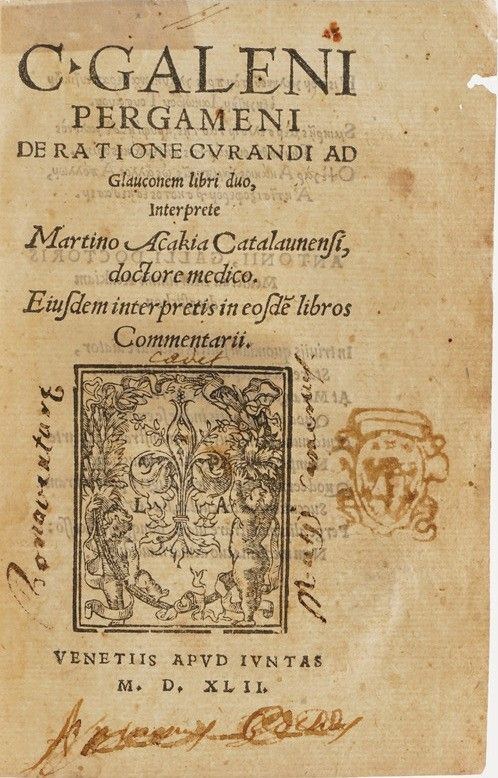 C. GALENI
PERGAMENI
DE RATIONE CVRANDI AD
Glauconem libri duo,
Interprete
Martino Acakia Catalaunensi,
doctore medico.
Eiusdem interpretis in eosdē libros
Commentarii.
L A
Bonaventure
VENETIIS APVD IVNTAS
M. D. XLII.